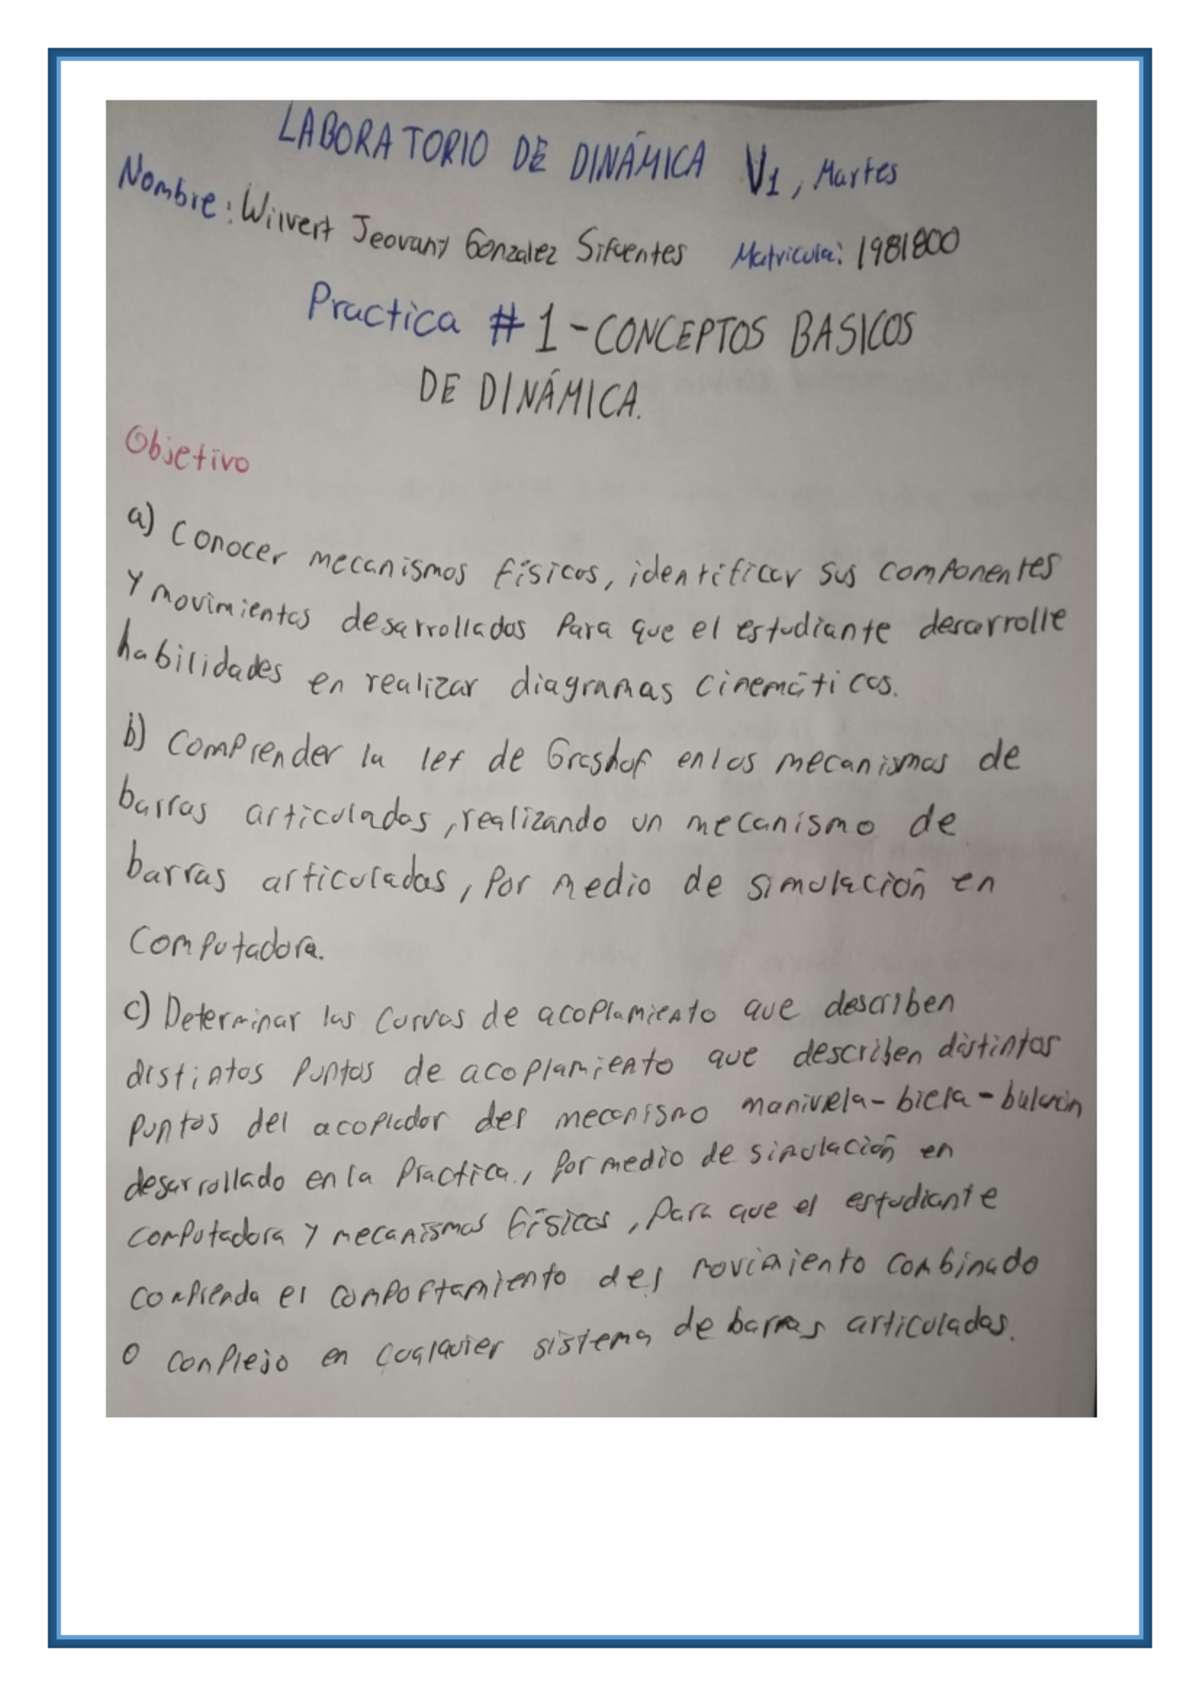 LABORATORIO DE DINÁMICA V1, Martes
Nombre: Wilvert Jeovany Gonzalez Sifuentes Matricula: 1981800
Practica # 1-CONCEPTOS BASICOS
DE DINÁMICA.
Objetivo
a) Conocer mecanismos físicos, identificar sus componentes
y movimientos desarrollados para que el estudiante desarrolle
habilidades en realizar diagramas cinemáticos.
b) Comprender la ley de Grashof en los mecanismos de
barras articulados, realizando un mecanismo de
barras articuladas, por medio de simulación en
computadora.
c) Determinar las curvas de acoplamiento que describen
distintos puntos de acoplamiento que describen distintos
puntos del acoplador del mecanismo manivela-biela-balancin
desarrollado en la practica, por medio de simulación en
computadora y mecanismos físicos, para que el estudiante
comprenda el comportamiento del movimiento combinado
o complejo en cualquier sistema de barras articuladas.